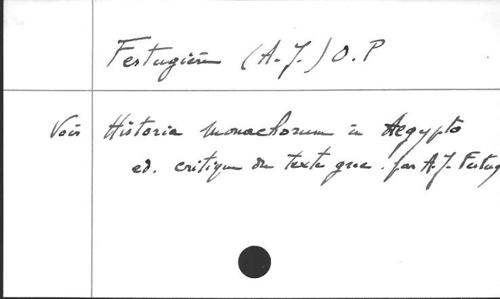 Festugière (A.J.) O.P
Voir Historia monachorum in Aegypto
ed. critique du texte grec. par A.J. Festug